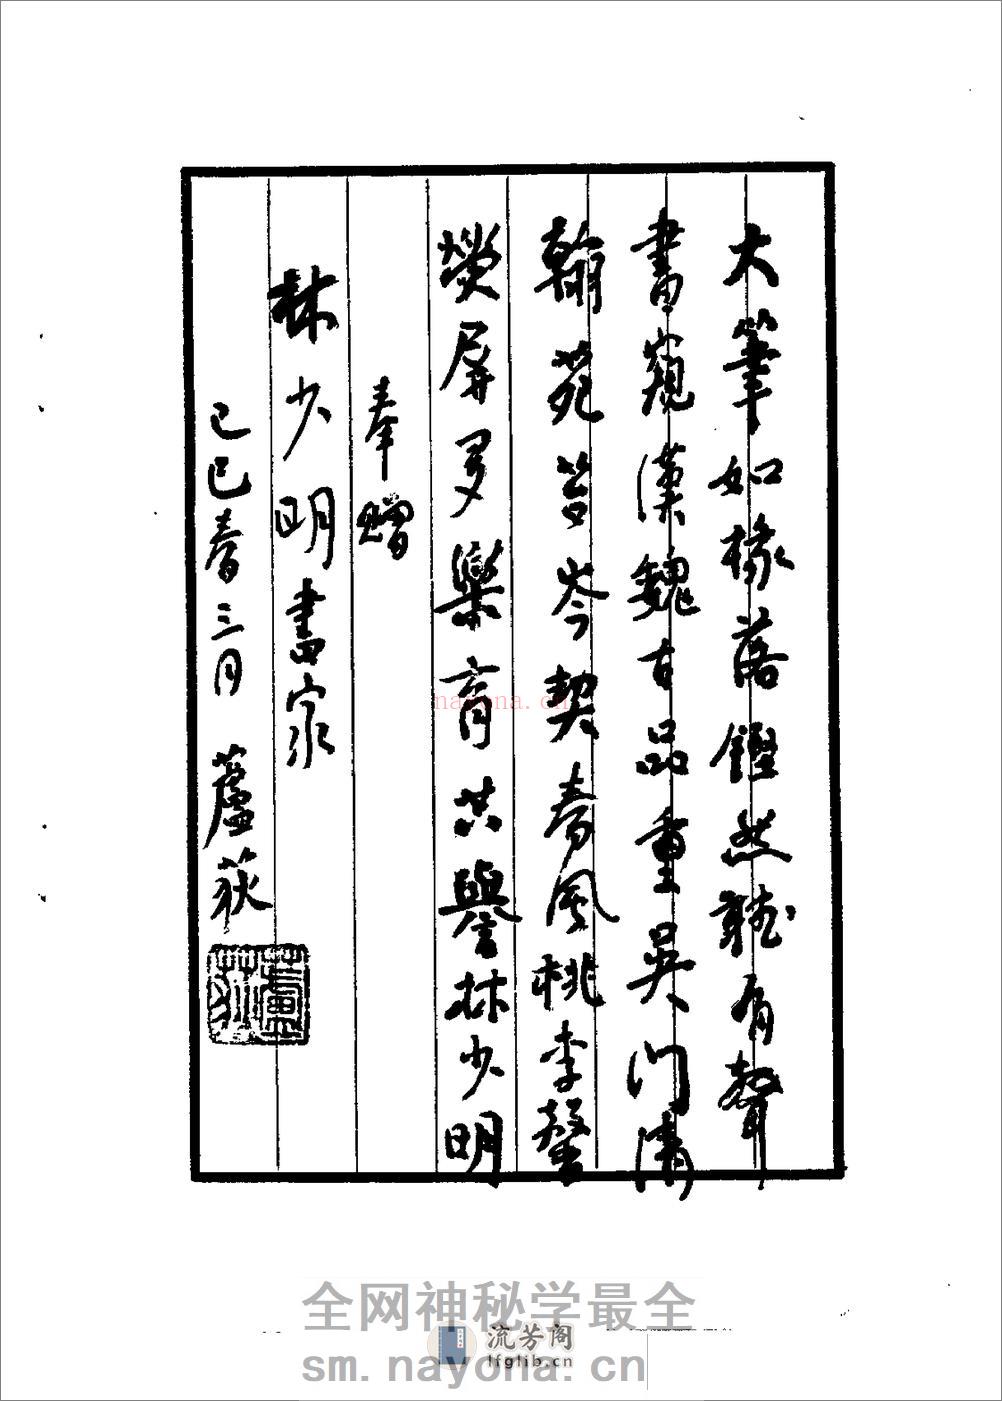 大筆如椽落鏗然聽有聲
書窺漢魏古品重吳門清
翰苑苔岑契春風桃李馨
熒屏多樂育共譽林少明
奉贈
林少明書家
己巳春三月 蘆荻
蘆荻
nayona.cn
全网神秘学最全
流芳阁
lfglib.cn
sm.nayona.cn